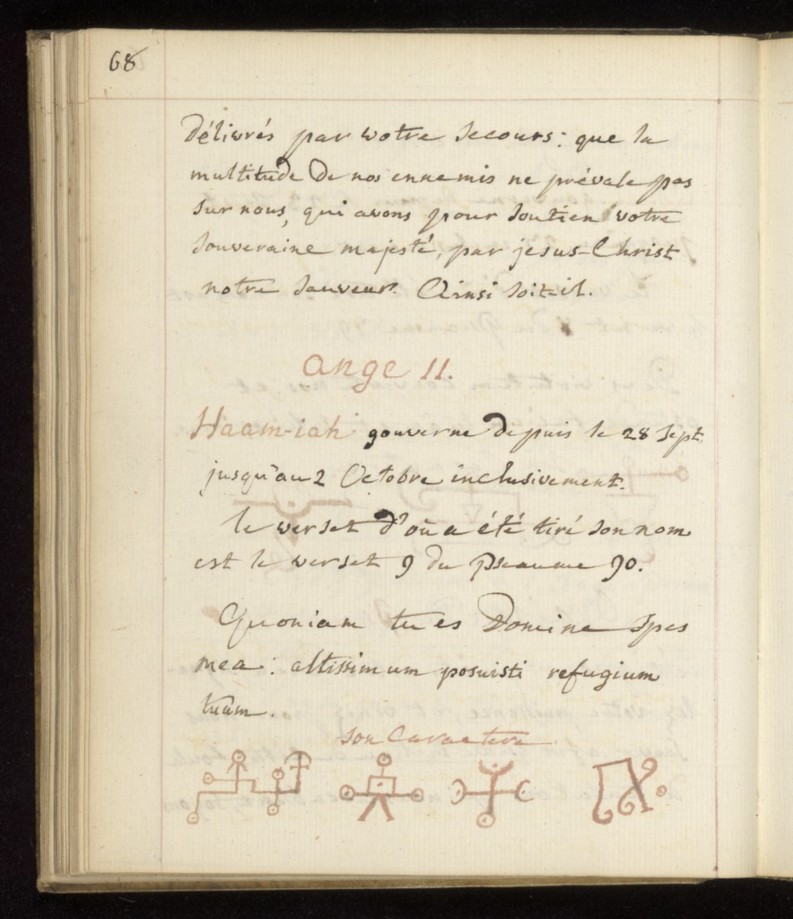 68
délivrés par votre secours: que la
multitude de nos ennemis ne prévale pas
sur nous, qui avons pour soutien votre
souveraine majesté, par jesus-Christ
notre sauveur. Ainsi soit-il.
Ange 11.
Haam-iah gouverne depuis le 28 Sept
jusqu'au 2 Octobre inclusivement.
le verset d'où a été tiré son nom
est le verset 9 du Pseaume 90.
Quoniam tu es Domine spes
mea: altissimum posuisti refugium
tuùm.
son Caractere